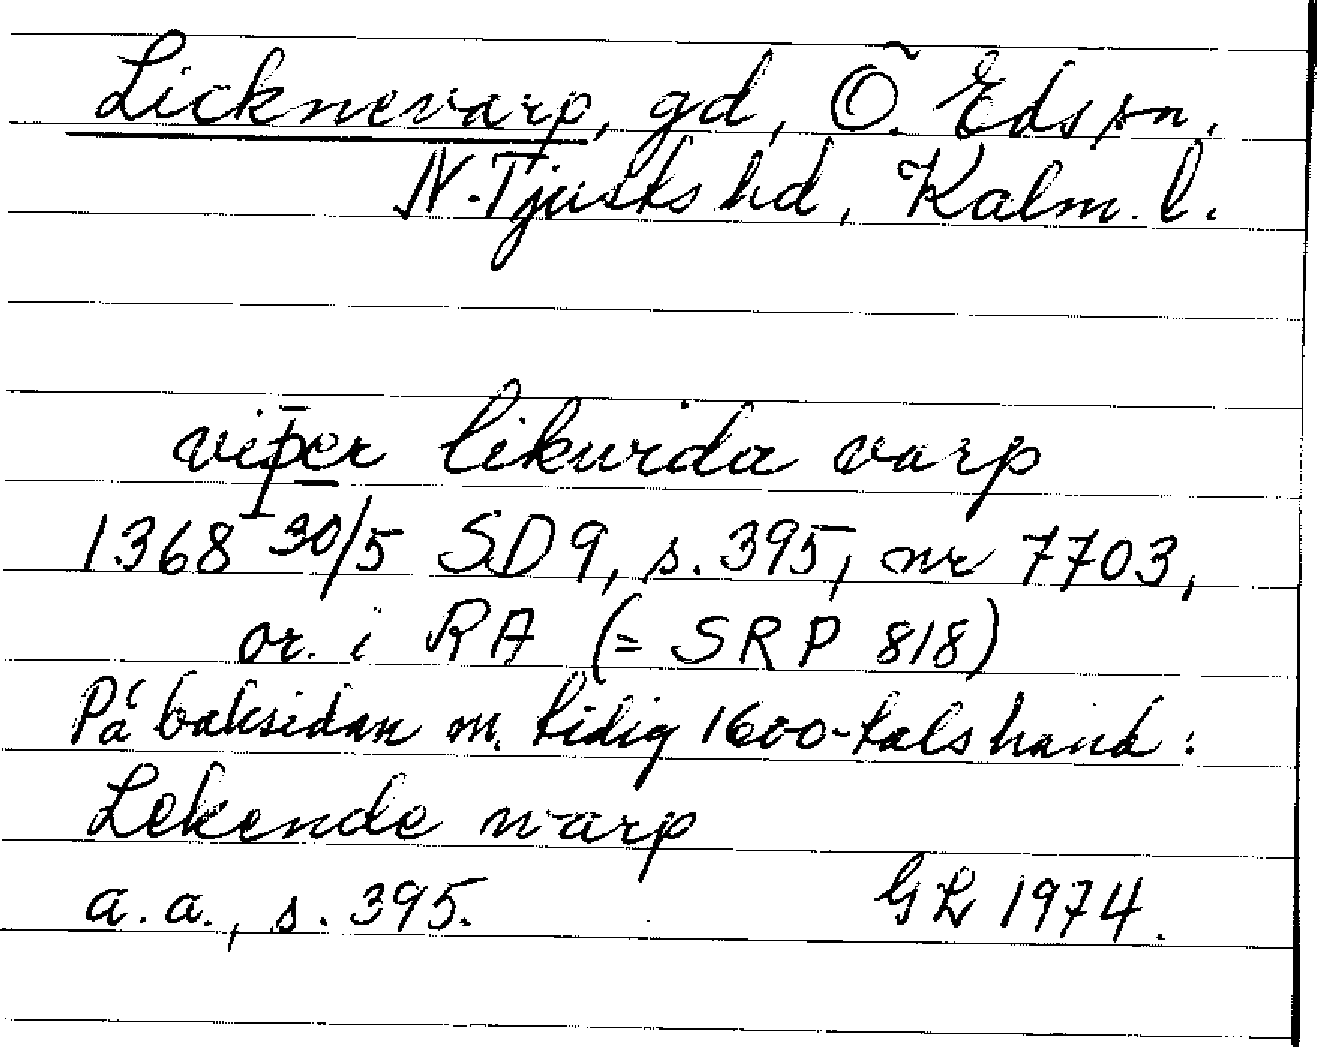 Licknevarp, gd, Ö. Eds sn,
N. Tjusts hd, Kalm. l.
viper likurda varp
1368 30/5 SD 9, s. 395, nr 7703,
or. i RA (= SRP 818)
På baksidan m. tidig 1600-talshand:
Lekende warp
a.a., s. 395. GL 1974.